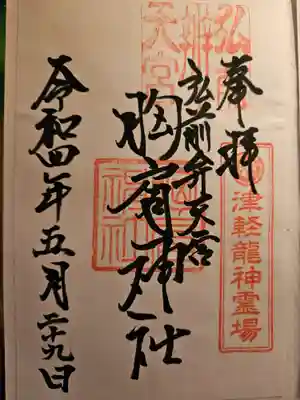 奉拝
津軽龍神霊場
弘前弁天宮
胸肩神社
令和四年五月二十九日